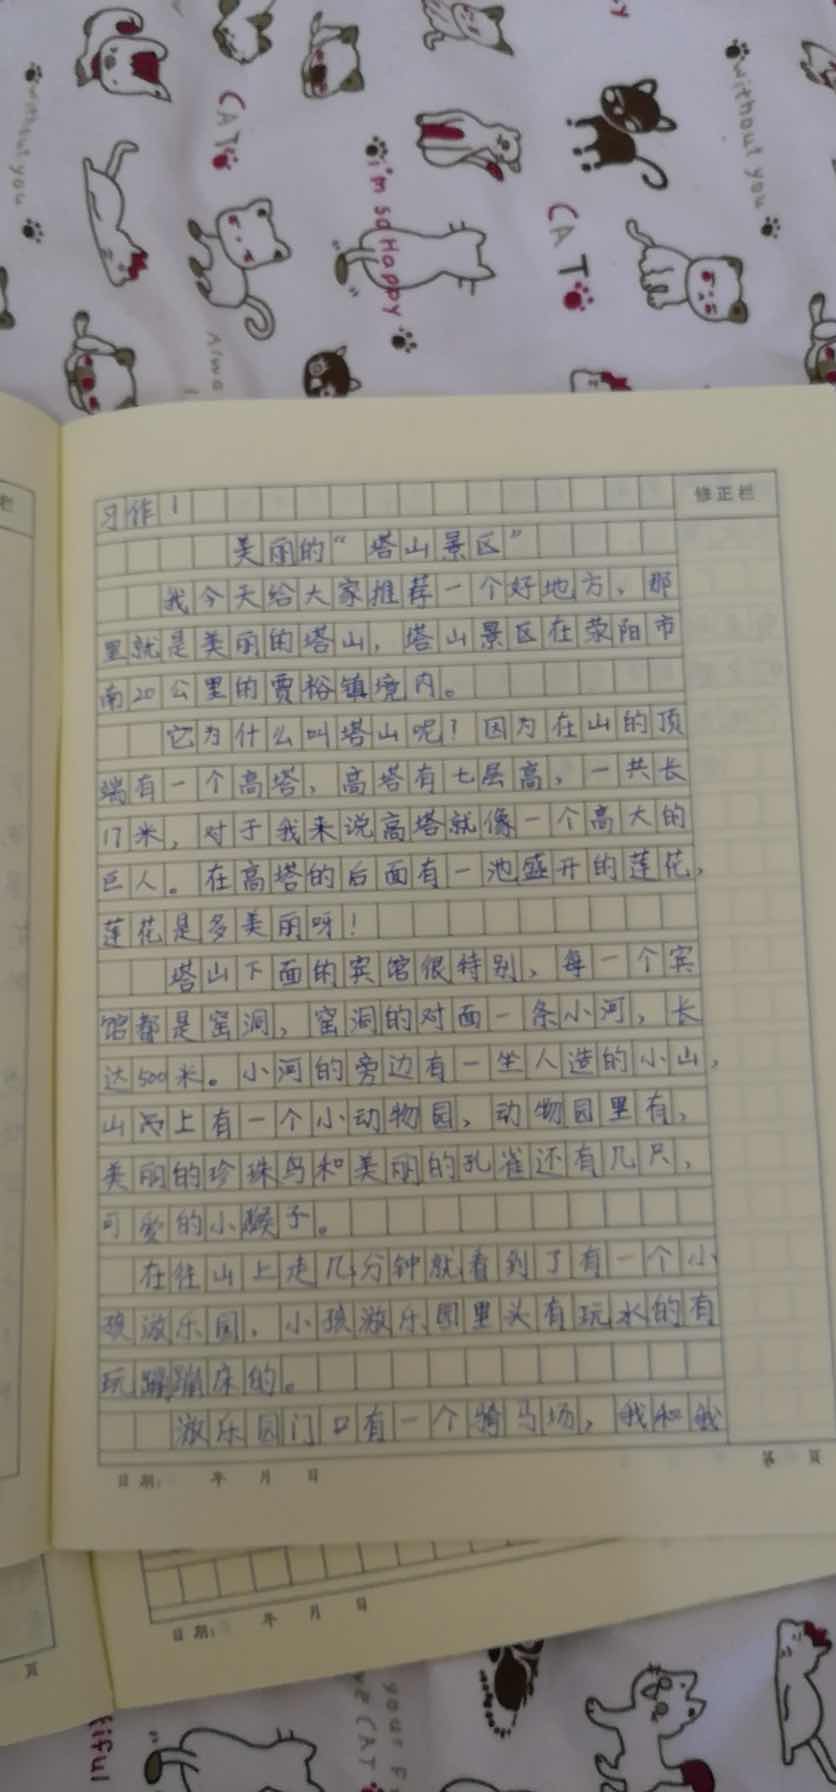 without you
CAT
I'm so Happy
CAT
without you
Alwa
栏
修正栏
习作1
美丽的“塔山景区”
我今天给大家推荐一个好地方，那
里就是美丽的塔山，塔山景区在荥阳市
南20公里的贾裕镇境内。
它为什么叫塔山呢？因为在山的顶
端有一个高塔，高塔有七层高，一共长
17米，对于我来说高塔就像一个高大的
巨人。在高塔的后面有一池盛开的莲花，
莲花是多美丽呀！
塔山下面的宾馆很特别，每一个宾
馆都是窑洞，窑洞的对面一条小河，长
达500米。小河的旁边有一坐人造的小山，
山上有一个小动物园，动物园里有，
美丽的珍珠鸟和美丽的孔雀还有几只，
可爱的小猴子。
在往山上走几分钟就看到了有一个小
孩游乐园，小孩游乐园里头有玩水的有
玩蹦床的。
游乐园门口有一个骑马场，我和我
日期： 年 月 日
第 页
日期： 年 月 日
页
CAT
your F
tiful